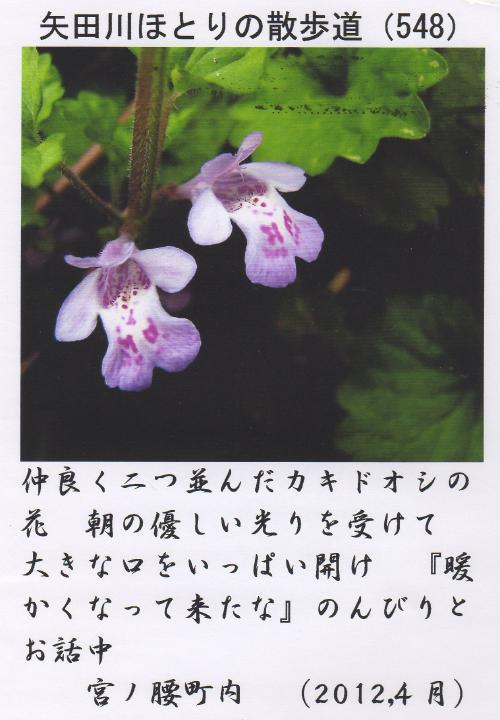 矢田川ほとりの散歩道（548）
仲良く二つ並んだカキドオシの
花　朝の優しい光りを受けて
大きな口をいっぱい開け　『暖
かくなって来たな』のんびりと
お話中
宮ノ腰町内　（2012,4 月）